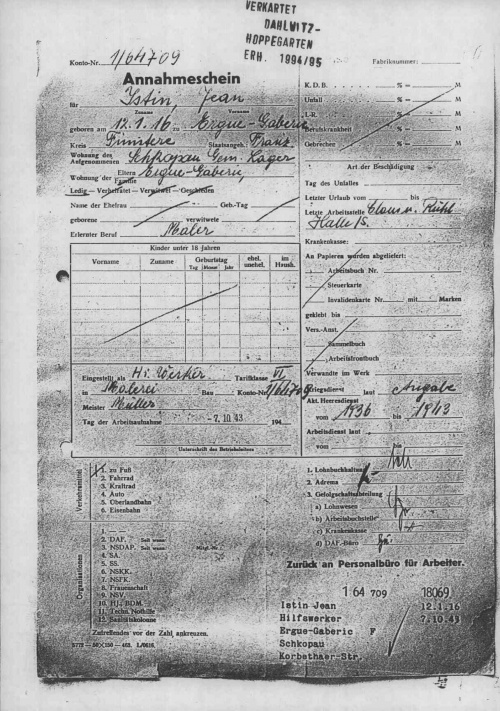 VERKARTET
DAHLWITZ-
HOPPEGARTEN
ERH. 1994/95
Konto-Nr. 1/64709
Fabriknummer:
Annahmeschein
für Istin, Jean
Zuname Vorname
geboren am 12.1.16 zu Ergue-Gaberic
Kreis Finistere Staatsangeh. Franz.
Wohnung des
Aufgenommenen Schkopau Gem. Lager
Wohnung der Eltern
Familie Ergue-Gaberic,
Ledig — Verheiratet — Verwitwet — Geschieden
Name der Ehefrau Geb.-Tag
geborene verwitwete
Erlernter Beruf Maler
Kinder unter 16 Jahren
Vorname Zuname Geburtstag ehel. im
Tag Monat Jahr unehel. Haush.
Eingestellt als Hi. Werker Tarifklasse VI
in Malerei Bau Konto-Nr. 1/64709
Meister Müller
Tag der Arbeitsaufnahme -7.10.43 194
Unterschrift des Betriebsleiters
Verkehrsmittel
1. zu Fuß
2. Fahrrad
3. Kraftrad
4. Auto
5. Oberlandbahn
6. Eisenbahn
Organisationen
1. —
2. DAF. Seit wann:
3. NSDAP. Seit wann: Mitgl.-Nr.:
4. SA.
5. SS.
6. NSKK.
7. NSFK.
8. Frauenschaft
9. NSV.
10. HJ., BDM.
11. Techn. Nothilfe
12. Sanitätskolonne
Zutreffendes vor der Zahl ankreuzen.
K. D. B. % = M
Unfall % = M
I.-R. % = M
Berufskrankheit % = M
Gebrechen % = M
Art der Beschädigung
Tag des Unfalles
Letzter Urlaub vom bis
Letzte Arbeitsstelle Claus u. Rühl
Halle/S.
Krankenkasse:
An Papieren wurden abgeliefert:
Arbeitsbuch Nr.
Steuerkarte
Invalidenkarte Nr. mit Marken
geklebt bis
Vers.-Anst.
Sammelbuch
Arbeitsfrontbuch
Verwandte im Werk
Kriegsdienst laut Angabe
Akt. Heeresdienst
vom 1936 bis 1943
Arbeitsdienst laut
vom bis
1. Lohnbuchhaltung
2. Adrema
3. Gefolgschaftsabteilung
a) Lohnwesen
b) Arbeitsbuchstelle
c) Krankenkasse
d) DAF-Büro
Zurück an Personalbüro für Arbeiter.
1 64 709 18069
Istin Jean 12.1.16
Hilfsworker 7.10.43
Ergue-Gaberic F
Schkopau
Korbethaer-Str.